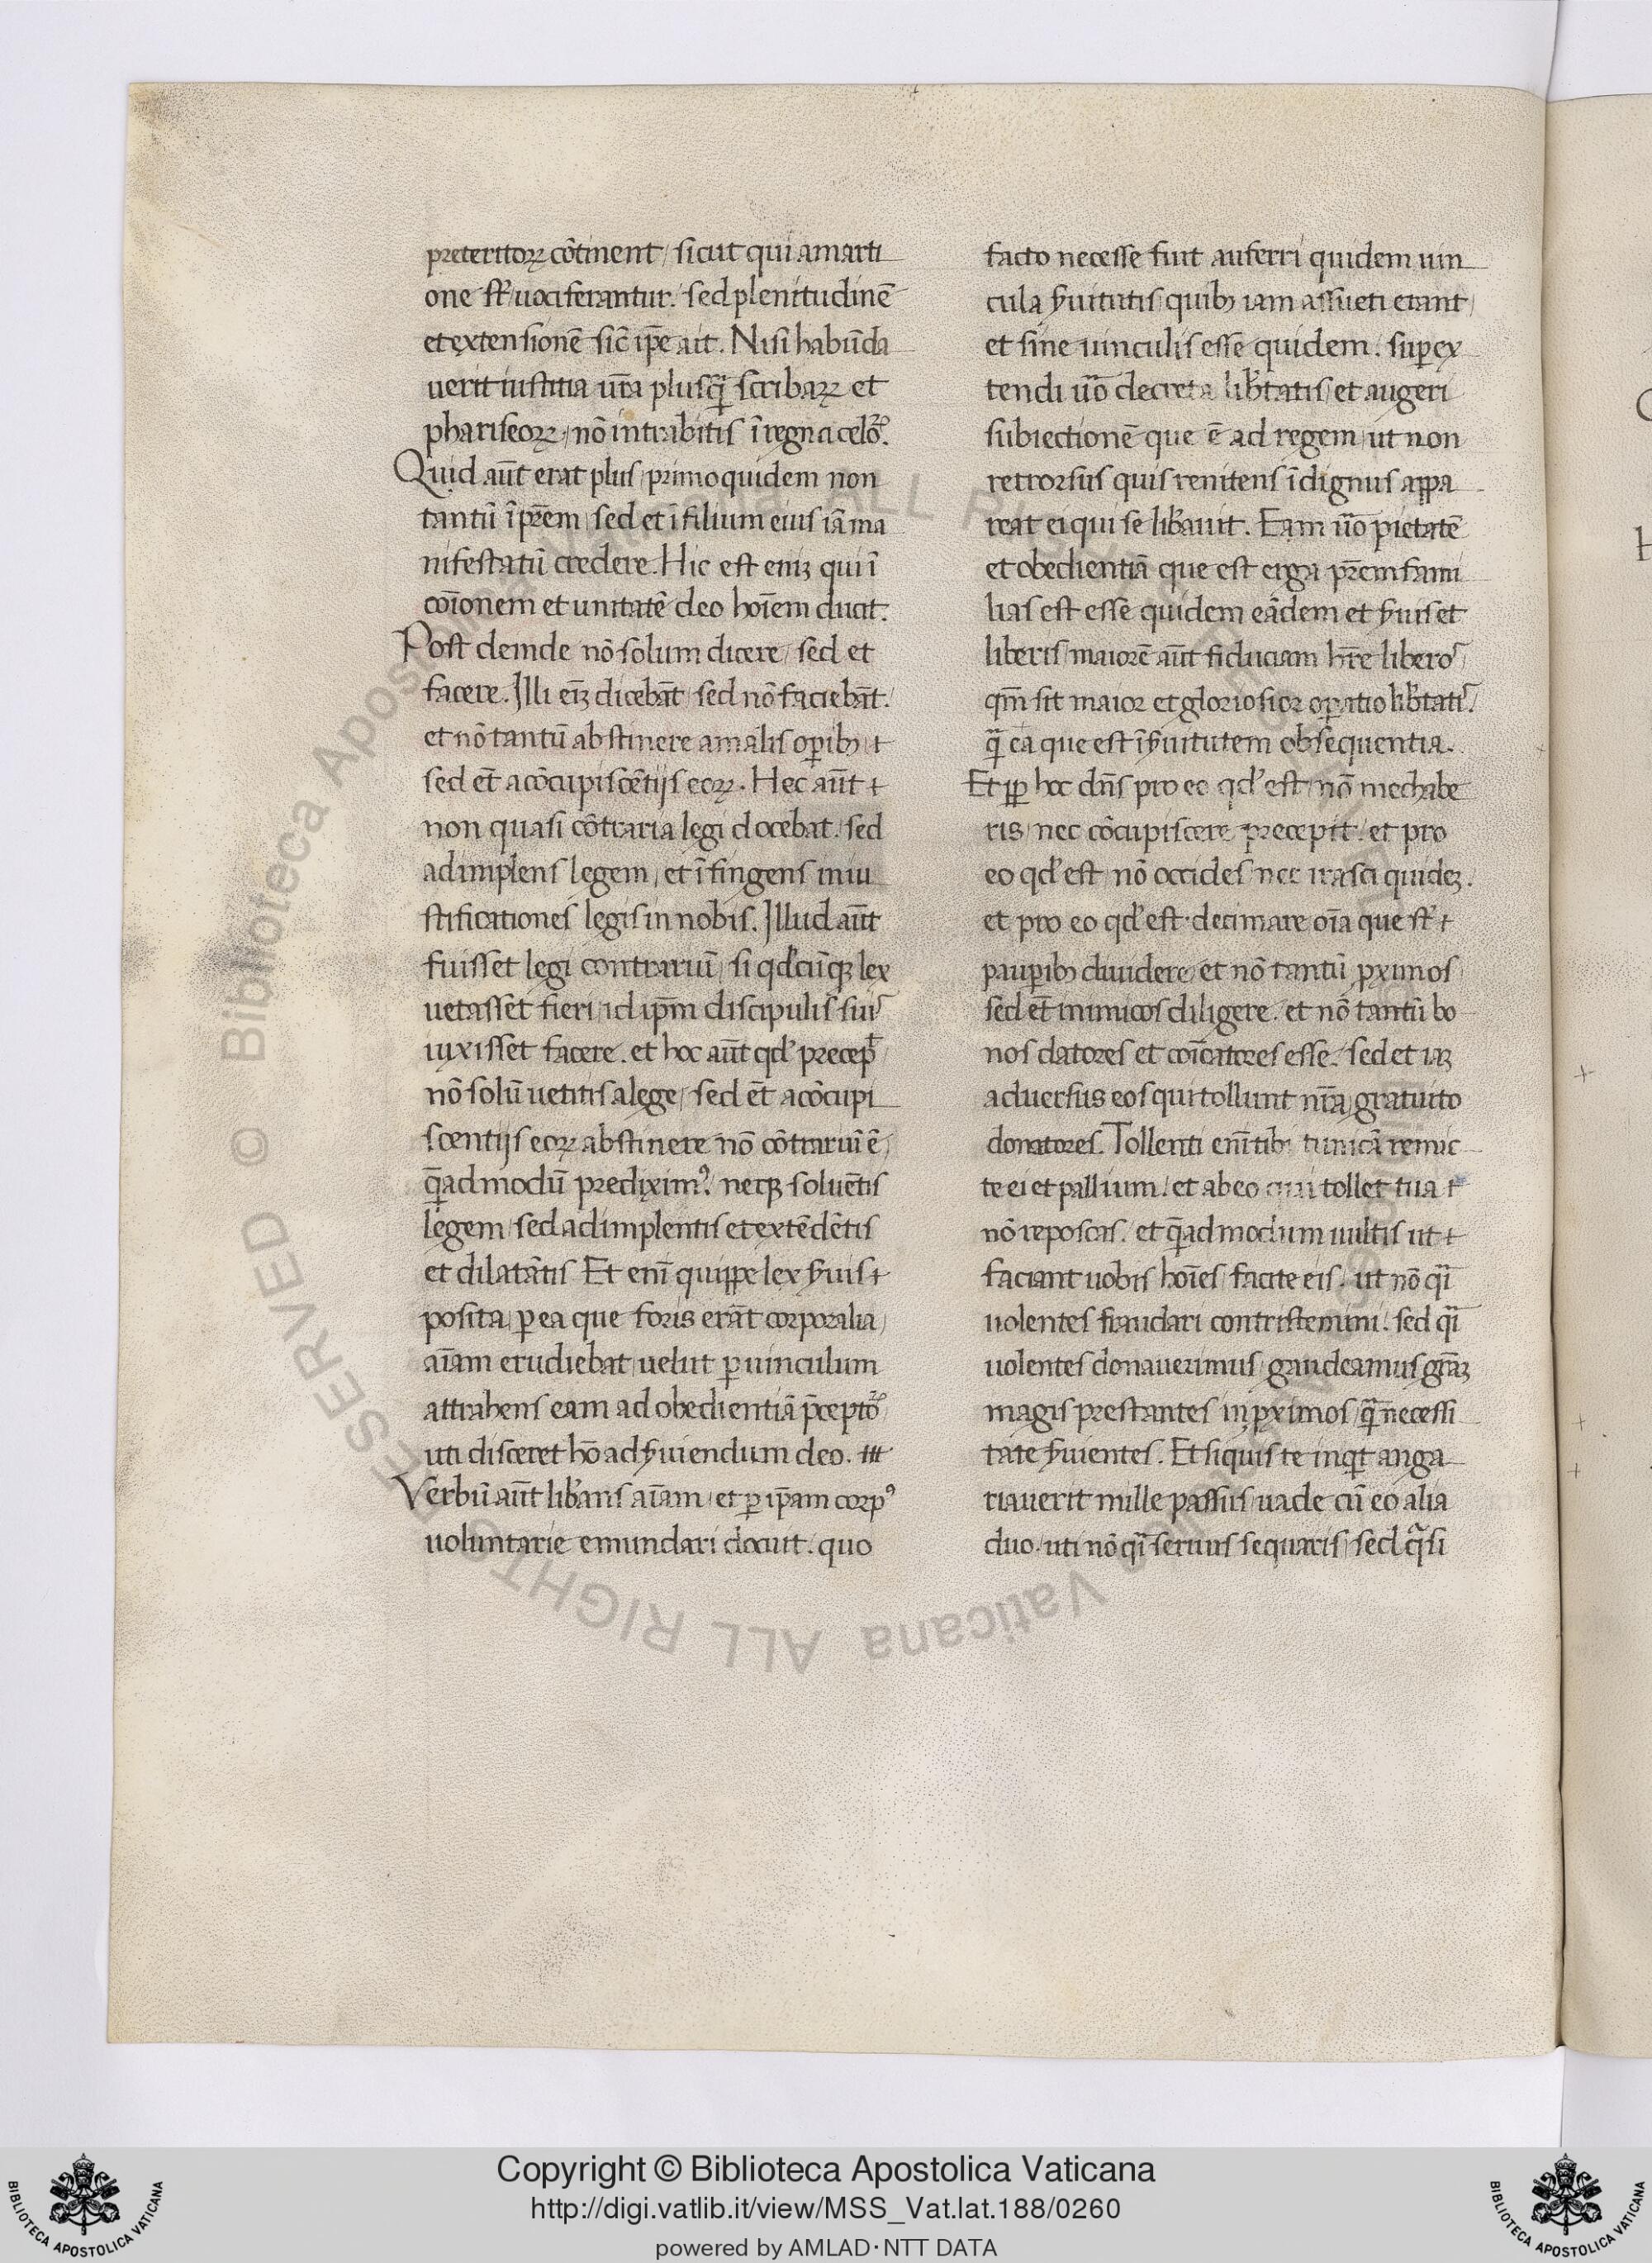 preteritoꝝ cōtinent / sicut qui a marti
one st̄ / uociferantur. sed plenitudinē
et extensionē sic̄ ip̄e ait. Nisi habūda
uerit iustitia ur̄a plusq̄ scribaꝝ et
phariseoꝝ / nō intrabitis ī regna celoꝝ.
Quid aūt erat plus / primo quidem non
tantū ī pr̄em / sed et ī filium eius iā ma
nifestatū credere. Hic est eniꝫ qui ī
coīonem et unitatē deo hoīem ducit.
Post deinde nō solum dicere / sed et
facere. Illi eīꝫ dicebāt / sed nō faciebāt.
et nō tantū abstinere a malis oꝑibꝫ
sed et̄ a cōcupiscētijs eoꝝ. Hec aūt
non quasi cōtraria legi docebat. sed
adimplens legem / et īfingens in iu
stificationes legis in nobis. Illud aūt
fuisset legi contrariū / si qd̓cūqꝫ lex
uetasset fieri / id ip̄m discipulis suis
iuxisset facere. et hoc aūt qd̓ precep̄
nō solū uetitis a lege / sed et̄ a cōcupi
scentijs eoꝝ abstinere nō cōtrariū ē /
q̄admodū prediximꝰ. neqꝫ soluētis
legem / sed adimplentis et extēdētis
et dilatātis Et enī quippe lex ẜuis
posita / ꝑ ea que foris erāt corporalia /
aīam erudiebat / uelut ꝑ uinculum
attrahens eam ad obedientiā p̄ceptoꝝ
uti disceret hō ad ẜuiendum deo.
Verbū aūt lib̓ans aīam / et ꝑ ip̄am corpꝰ
uoluntarie emundari docuit. quo
facto necesse fuit auferri quidem uin
cula ẜuitutis / quibꝫ iam assueti erant /
et sine uinculis esse quidem. suꝑex
tendi ūo decreta lib̓tatis / et augeri
subiectionē que ē ad regem / ut non
retrorsus quis renitens īdignus appa
reat ei qui se lib̓auit. Eam ūo pietatē
et obedientiā que est erga pr̄em fami
lias est esse quidem eādem et ẜuis et
liberis / maiorē aūt fiduciam hr̄e liberos /
qm̄ sit maior et gloriosior oꝑatio lib̓tatis.
q̄ ea que est ī ẜuitutem obsequentia.
Et ꝓp hoc dn̄s pro eo qd̓ est / nō mechabe
ris / nec cōcupiscere precepit. et pro
eo qd̓ est / nō occides / nec irasci quideꝫ.
et pro eo qd̓ est. decimare oīa que st̄
pauꝑibꝫ diuidere / et nō tantū ꝓximos /
sed et̄ inimicos diligere. et nō tantū bo
nos datores et coīcatores esse. sed et iaꝫ
aduersus eos qui tollunt nr̄a / gratuito
donatores. Tollenti enī tibi tunicā remic
te ei et pallium. et ab eo qui tollet tua
nō reposcas. et q̄admodum uultis ut
faciant uobis hoīes / facite eis. ut nō q̄i
uolentes fraudari contristemini. sed q̄i
uolentes donauerimus / gaudeamus gr̄aꝫ
magis prestantes in ꝓximos / q̄ necessi
tate ẜuientes. Et siquis te inqt anga
riauerit mille passus / uade cū eo alia
duo. uti nō q̄i seruus sequaris / sed q̄si
© Biblioteca Apostolica Vaticana ALL RIGHTS RESERVED
Copyright © Biblioteca Apostolica Vaticana
http://digi.vatlib.it/view/MSS_Vat.lat.188/0260
powered by AMLAD·NTT DATA
BIBLIOTECA APOSTOLICA VATICANA
BIBLIOTECA APOSTOLICA VATICANA